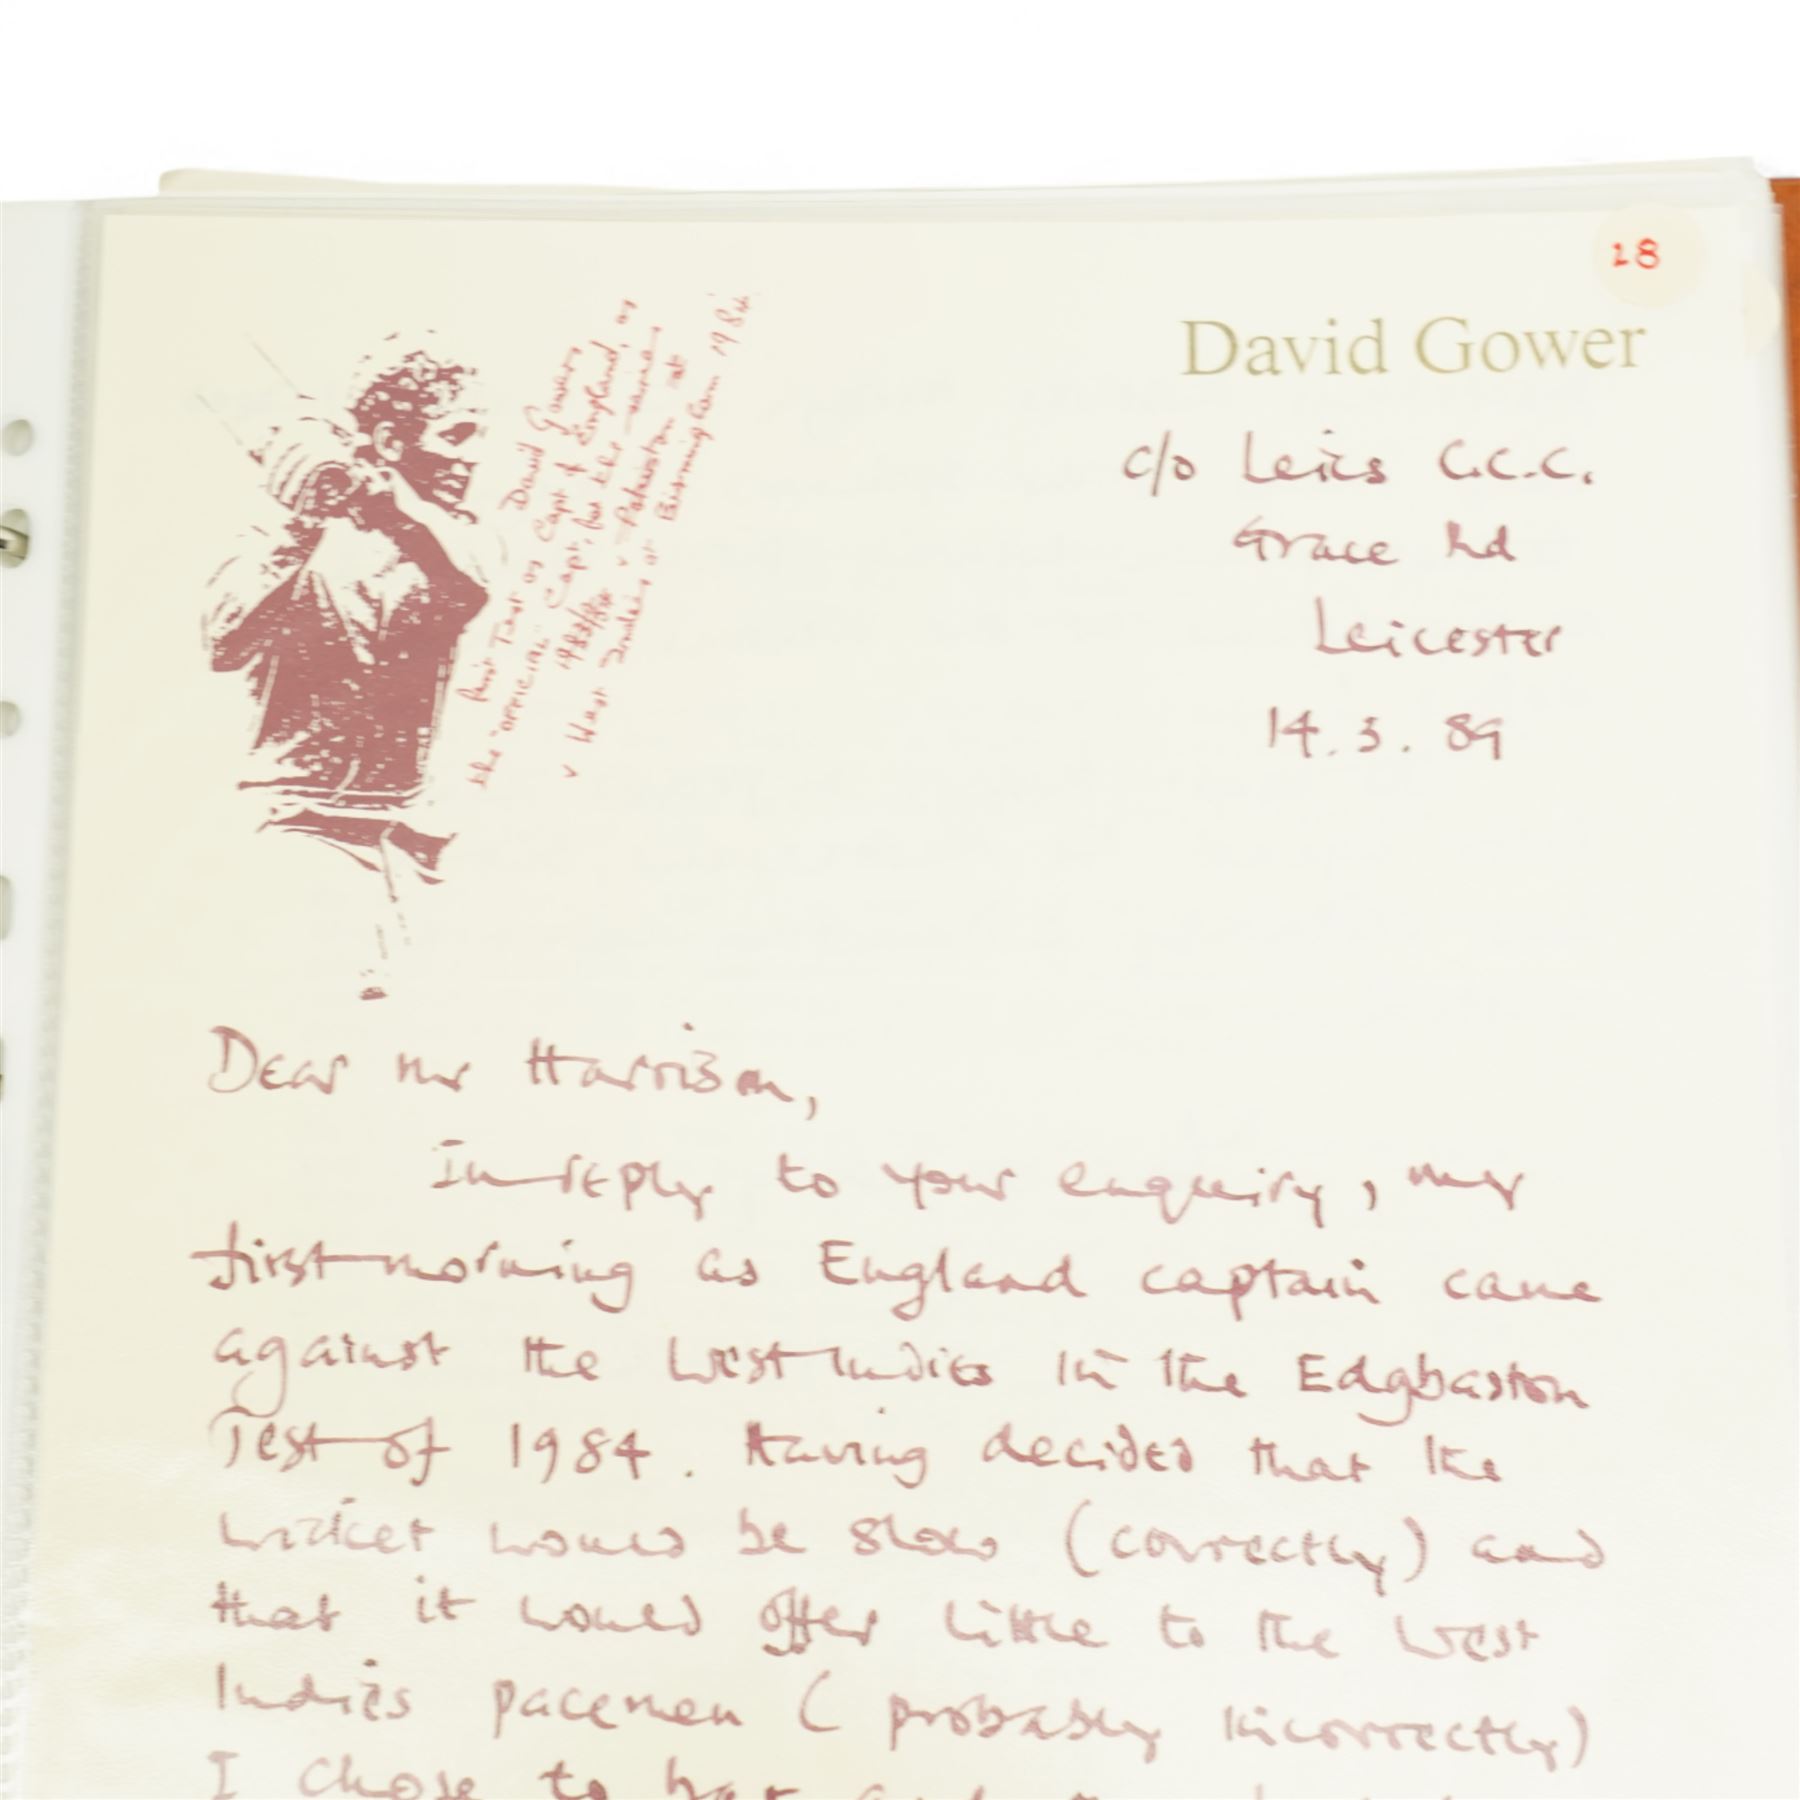 28
David Gower
c/o Leics C.C.C.
Grace Rd
Leicester
14.3.89
David Gower's
first Test as Capt of England, as
the "OFFICIAL" Capt, for the series
1983/84 v Pakistan at
v West Indies at Birmingham 1984
Dear Mr Harrison,
In reply to your enquiry, my
first morning as England captain came
against the West Indies in the Edgbaston
Test of 1984. Having decided that the
wicket would be slow (correctly) and
that it would offer little to the West
Indies pacemen (probably incorrectly)
I chose to bat